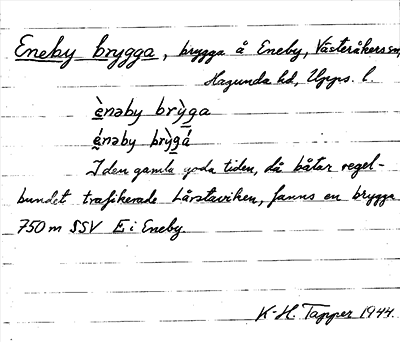 Eneby brygga, brygga å Eneby, Västeråkers sn,
Hagunda hd, Upps. l.
ènəby brỳga
énəby brỳgá
I den gamla goda tiden, då båtar regel-
bundet trafikerade Lårstaviken, fanns en brygga
750 m SSV E i Eneby.
K-H. Tapper 1944.